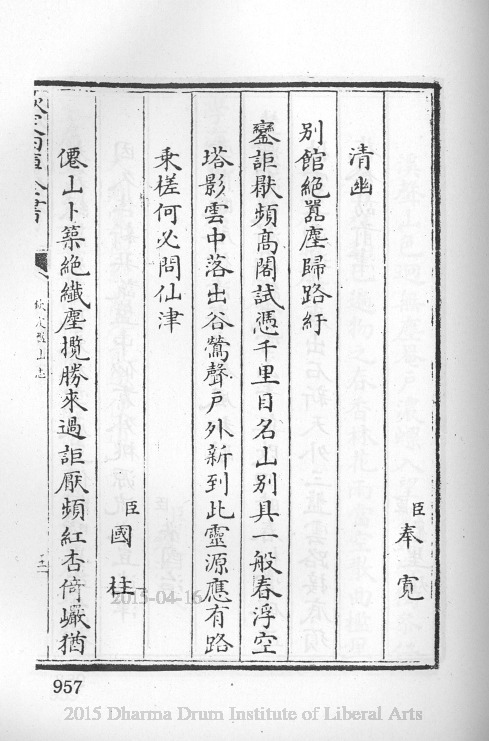 臣奉寛
清幽
别館絶囂塵歸路紆
鑾詎厭頻髙閣試憑千里目名山别具一般春浮空
塔影雲中落出谷鶯聲户外新到此靈源應有路
乘槎何必問仙津
臣國柱
僊山卜築絶纖塵攬勝來過詎厭頻紅杏倚巗猶
欽定四庫全書
欽定盤山志
2015-04-16
957
2015 Dharma Drum Institute of Liberal Arts